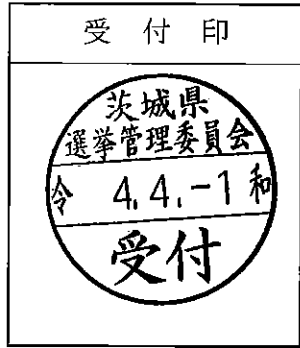 受付印
茨城県
選挙管理委員会
令 4.4.-1 和
受付